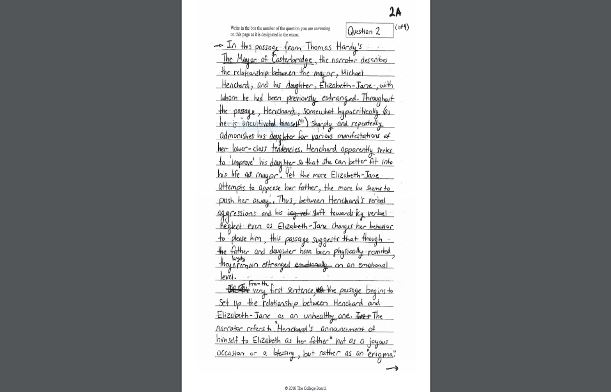 2A
Write in the box the number of the question you are answering
on this page as it is designated in the exam.
Question 2
(1 of 4)
→ In this passage from Thomas Hardy's
The Mayor of Casterbridge, the narrator describes
the relationship between the mayor, Michael
Henchard, and his daughter, Elizabeth-Jane, with
whom he had been previously estranged. Throughout
the passage, Henchard, somewhat hypocritically (as
he is "uncultivated himself") sharply and repeatedly
admonishes his daughter for various manifestations of
her lower-class tendencies. Henchard apparently seeks
to 'improve' his daughter so that she can better fit into
his life as mayor. Yet the more Elizabeth-Jane
attempts to appease her father, the more he seems to
push her away. Thus, between Henchard's verbal
aggressions and his shift towards verbal
neglect even as Elizabeth-Jane changes her behavior
to please him, this passage suggests that though
the father and daughter have been physically reunited,
they remain estranged on an emotional
level.
from the very first sentence, the passage begins to
set up the relationship between Henchard and
Elizabeth-Jane as an unhealthy one. The
narrator refers to "Henchard's announcement of
himself to Elizabeth as her father" not as a joyous
occasion or a blessing, but rather as an "enigma."
→
© 2018 The College Board